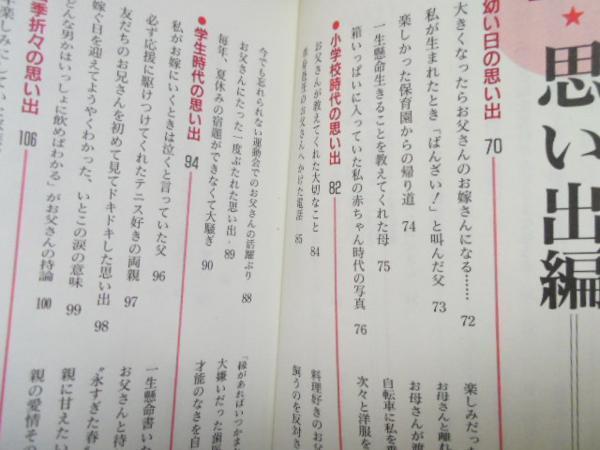 ★思い出編
幼い日の思い出 70
大きくなったらお父さんのお嫁さんになる…… 72
私が生まれたとき「ばんざい!」と叫んだ父 73
楽しかった保育園からの帰り道 74
一生懸命生きることを教えてくれた母 75
箱いっぱいに入っていた私の赤ちゃん時代の写真 76
●小学校時代の思い出 82
お父さんが教えてくれた大切なこと 84
単身赴任のお父さんへかけた電話 85
今でも忘れられない運動会でのお父さんの活躍ぶり 88
お父さんにたった一度ぶたれた思い出 89
毎年、夏休みの宿題ができなくて大騒ぎ 90
●学生時代の思い出 94
私がお嫁にいくときは泣くと言っていた父 96
必ず応援に駆けつけてくれたテニス好きの両親 97
友だちのお兄さんを初めて見てドキドキした思い出 98
嫁ぐ日を迎えてようやくわかった、いとこの涙の意味 99
どんな男かはいっしょに飲めばわかる」がお父さんの持論 100
季折々の思い出 106
楽しみだった
お母さんと離れ
お母さんが
自転車に私を
次々と洋服を
料理好きのお父
飼うのを反対さ
「縁があればいつかま
大嫌いだった歯医
才能のなさを自
一生懸命書いた
お父さんと待
"永すぎた春
親に甘えたい
親の愛情その